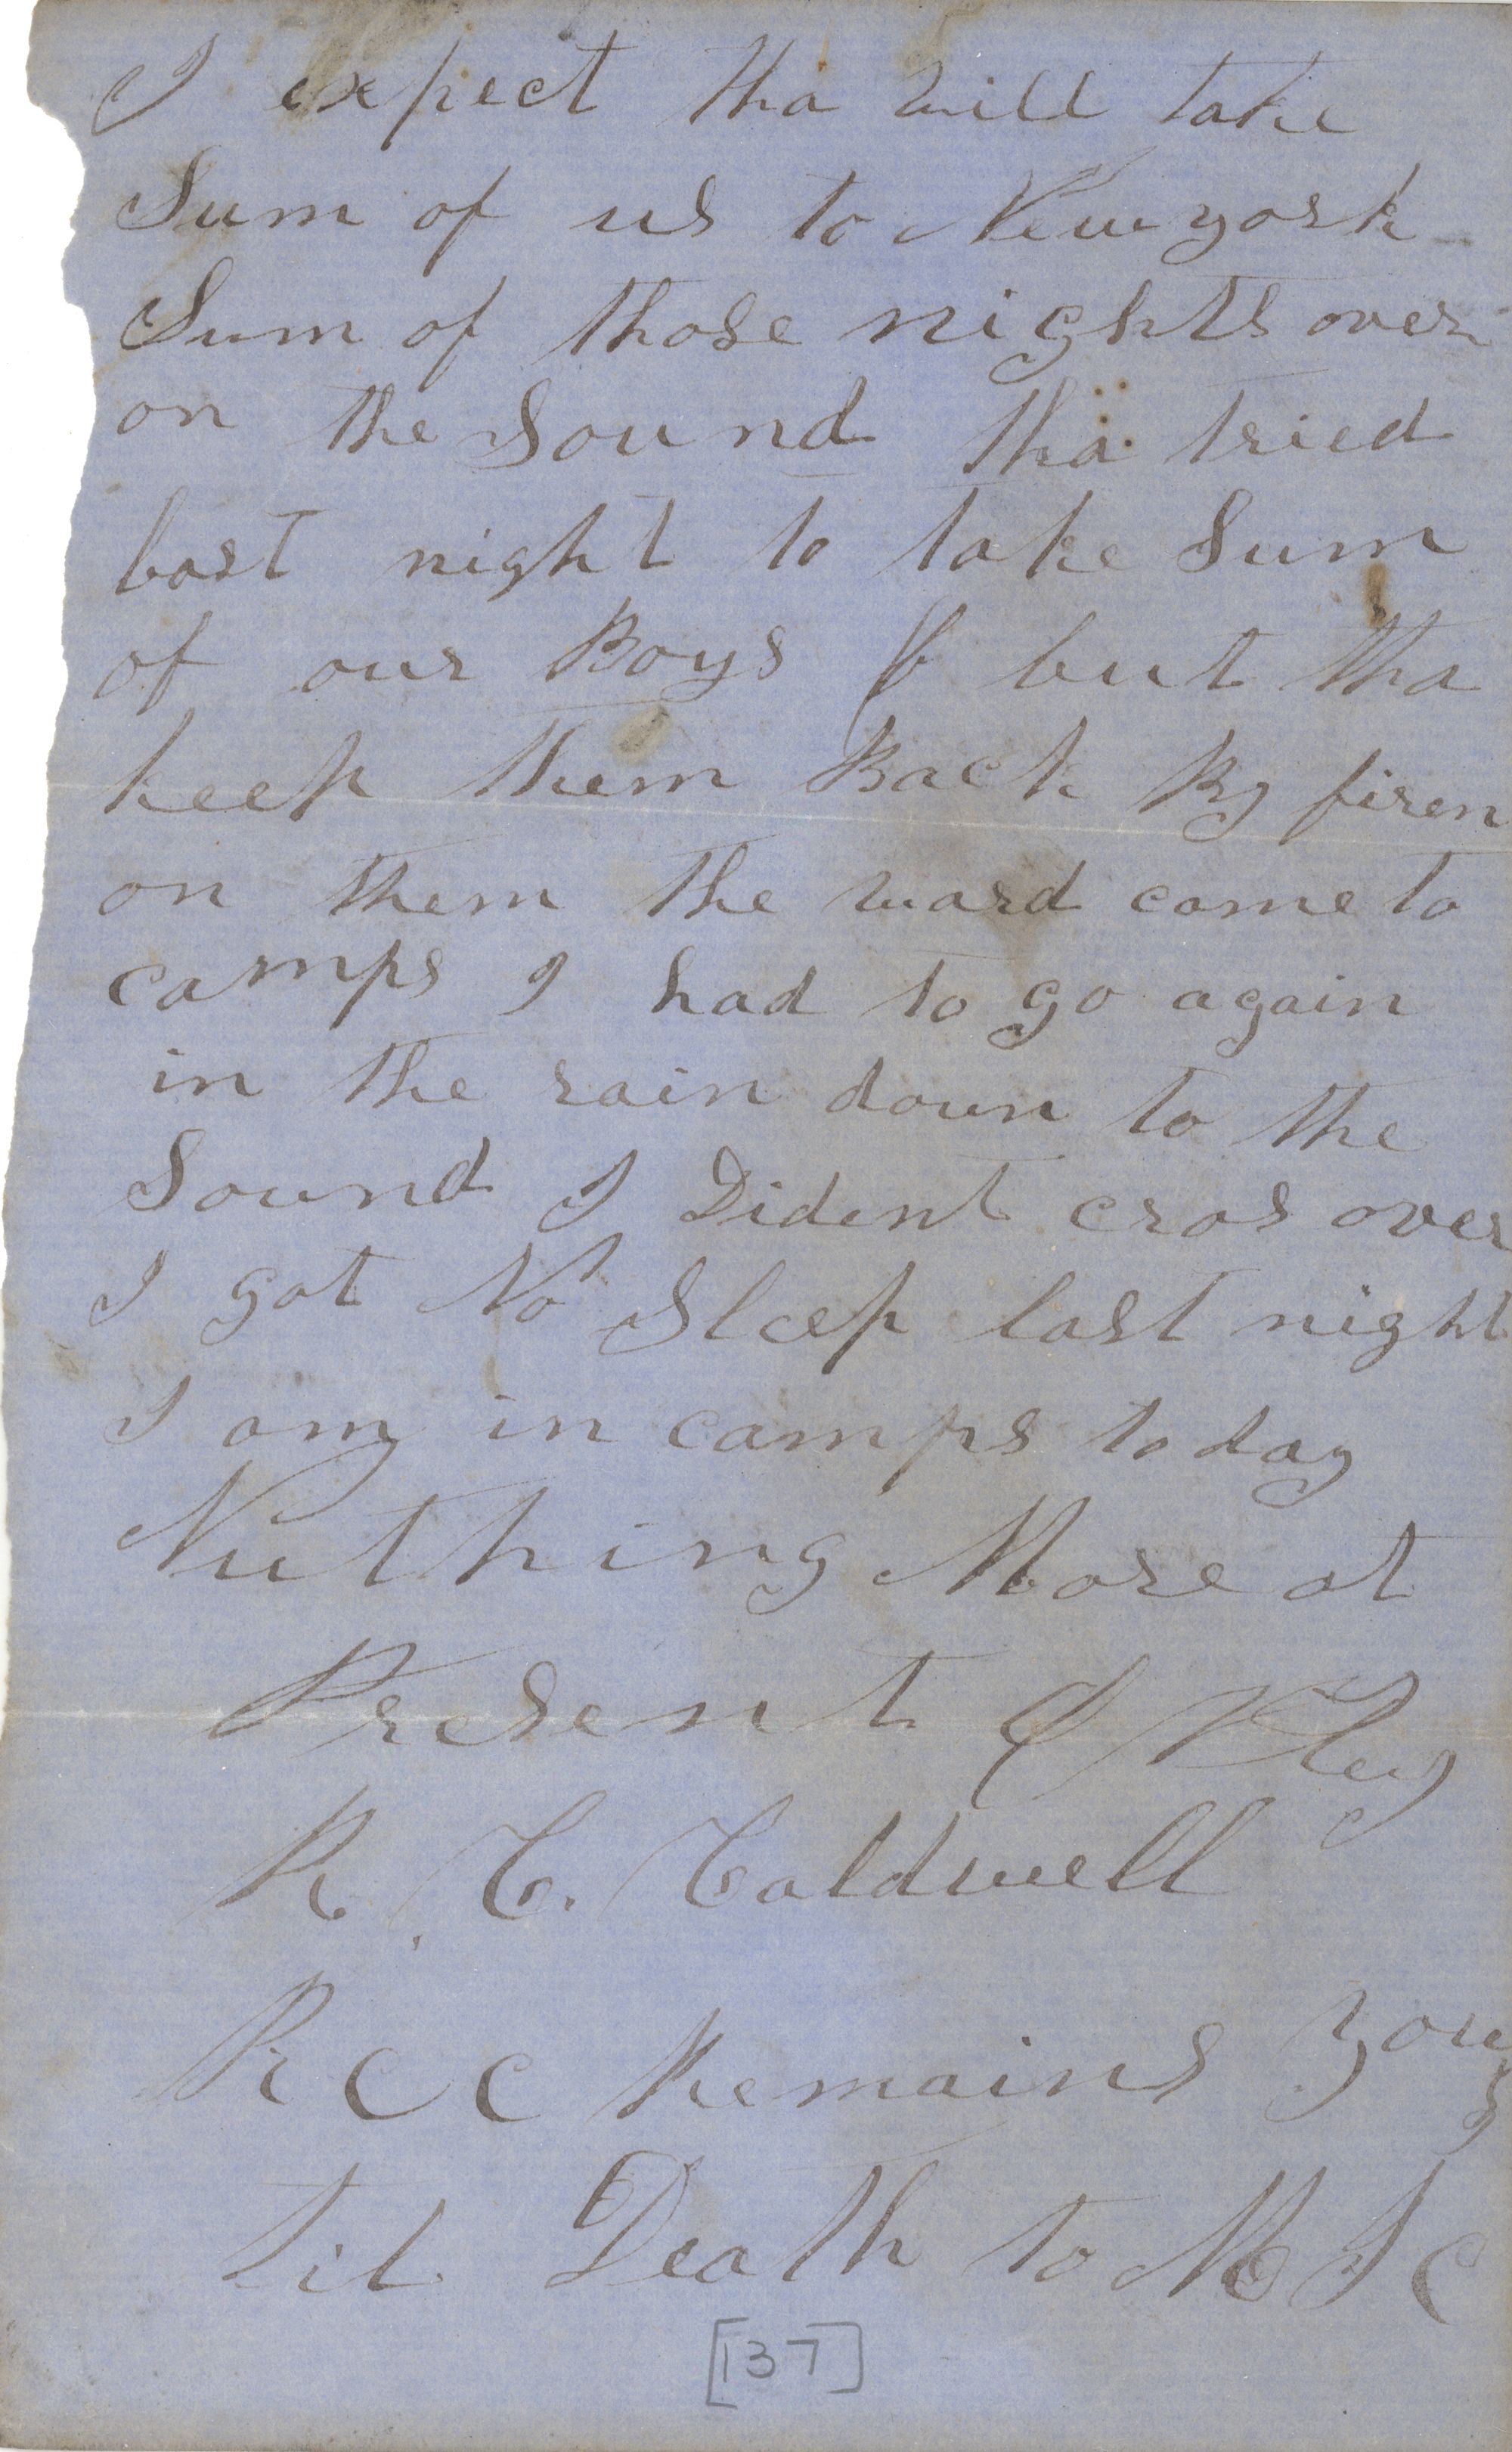 I expect tha will take
Sum of us to Newyork
Sum of those nights over
on the Sound tha tried
last night to take Sum
of our Boys but tha
keep them Back By firen
on them the ward come to
camps I had to go again
in the rain down to the
Sound I Dident cros over
I got No Sleep last night
I am in camps to day
Nuthing More at
Present
R. C. Caldwell
R C C Remains yours
til Death to M J C
[137]